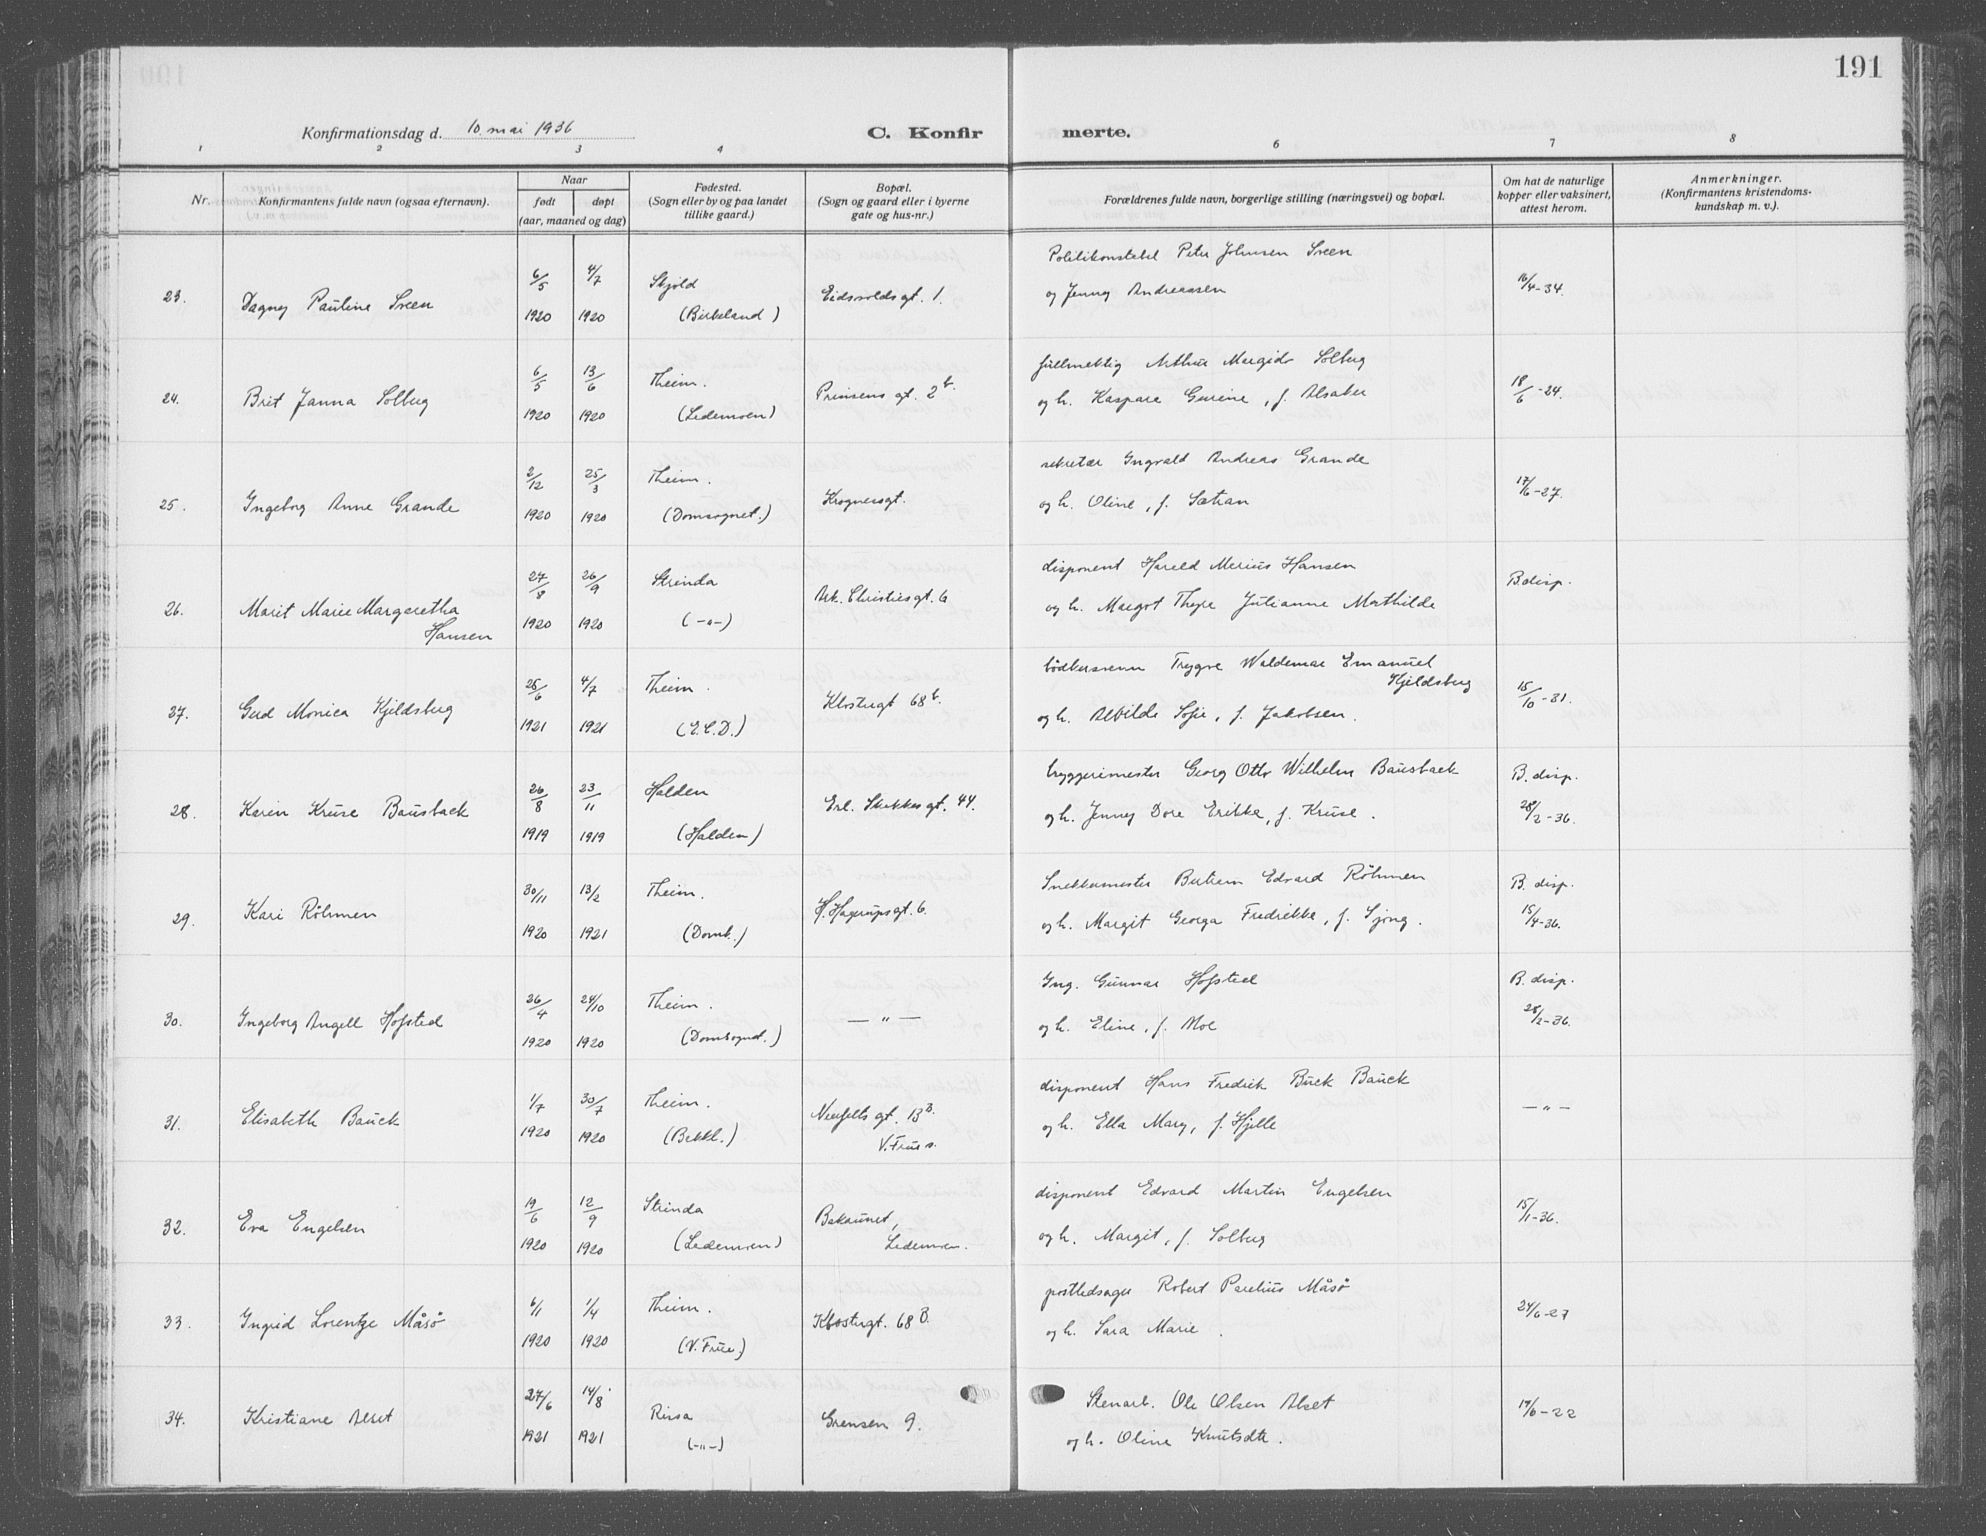 191
Konfirmationsdag d. 10. mai 1936
C. Konfir merte.
1 2 3 4 6 7 8
Nr. Konfirmantens fulde navn (ogsaa efternavn). Naar født døpt (aar, maaned og dag) Fødested. (Sogn eller by og paa landet tillike gaard.) Bopæl. (Sogn og gaard eller i byerne gate og hus-nr.) Forældrenes fulde navn, borgerlige stilling (næringsvei) og bopæl. Om hat de naturlige kopper eller vaksinert, attest herom. Anmerkninger. (Konfirmantens kristendoms-kundskap m. v.).
Politikonstabel Peter Johnsen Sveen
23. Dagny Pauline Sveen 6/5 1920 4/7 1920 Skjold (Birkeland) Eidsvoldsgt. 1. og Jenny Andreassen 16/4-34.
fullmektig Arthur Margido Solberg
24. Brit Janna Solberg 6/5 1920 13/6 1920 Theim. (Lademoen) Prinsens gt. 2b. og h. Kaspara Gurine, f. Alsaker 18/6-24.
sekretær Ingvald Andreas Grande
25. Ingeborg Anne Grande 2/12 1920 25/3 1920 Theim. (Domsognet.) Krognessgt. og h. Oline, f. Sætran 17/6-27.
disponent Harald Merius Hansen
26. Marit Marie Margaretha Hansen 27/8 1920 26/9 1920 Strinda (-"-) Ark. Christiesgt. 6 og h. Margot Thyre Julianne Mathilde B. disp.
bødkersvenn Trygve Waldemar Emanuel Kjeldsberg
27. Gerd Monica Kjeldsberg 25/6 1921 4/7 1921 Theim. (E.C.D.) Klostergt 68b. og h. Alvilde Sofie, f. Jakobsen. 15/10-31.
bryggerimester Georg Otto Wilhelm Bausback
28. Karin Kruse Bausback 26/8 1919 23/11 1919 Halden (Halden) Erl. Skakkes gt. 44. og h. Jenny Dore Erikke, f. Kruse. B. disp. 28/2-36.
Snekkermester Bertram Edvard Röhmen
29. Kari Röhmen 30/11 1920 13/2 1921 Theim. (Domk.) H. Hagerupsgt. 6. og h. Margit Georga Fredrikke, f. Sjong. B. disp. 15/4-36.
Ing. Gunnar Hofstad
30. Ingeborg Angell Hofstad 26/4 1920 24/10 1920 Theim. (Domsognet.) — " — og h. Eline, f. Moe B. disp. 28/2-36.
disponent Hans Fredrik Buck Bauck
31. Elisabeth Bauck 1/7 1920 30/7 1920 Theim. (Bakkl.) Neufelts gt. 13B. V. Frue s. og h. Ella Mary, f. Hjelle — " —
disponent Edvard Martin Engelsen
32. Eva Engelsen 19/6 1920 12/9 1920 Strinda (Lademoen) Bakaunet, Lademoen. og h. Margit, f. Solberg 15/1-36.
postledsager Robert Parelius Måsø
33. Ingrid Lorentze Måsø 6/1 1920 1/4 1920 Theim. (V. Frue.) Klostergt. 68 B. og h. Sara Marie. 24/6-27
Stenarb. Ole Olsen Alset
34. Kristiane Alset 27/6 1921 14/8 1921 Rissa (-"-) Grensen 9. og h. Oline Knutsdtr. 19/6-22